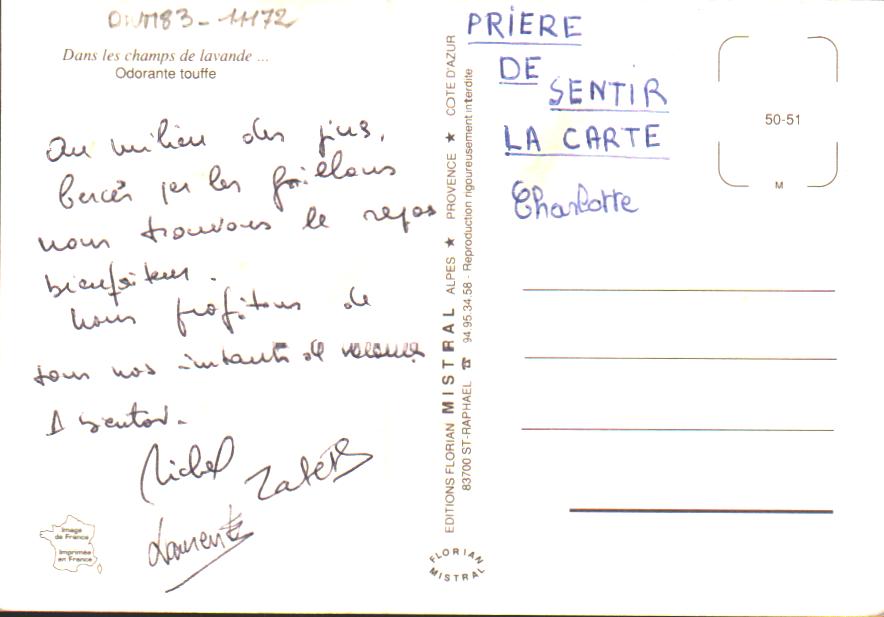 Dans les champs de lavande ...
Odorante touffe
au milieu des pins,
bercés par les grillons
nous trouvons le repos
bienfaiteur.
Nous profitons de
tous nos instants de vacances
A bientôt.
Michel
Laurent
Image
de France
Imprimée
en France
EDITIONS FLORIAN MISTRAL ALPES ★ PROVENCE ★ COTE D'AZUR
83700 ST-RAPHAEL ☎ 94.95.34.58 - Reproduction rigoureusement interdite
FLORIAN
MISTRAL
PRIERE
DE
SENTIR
LA CARTE
Charlotte
50-51
M